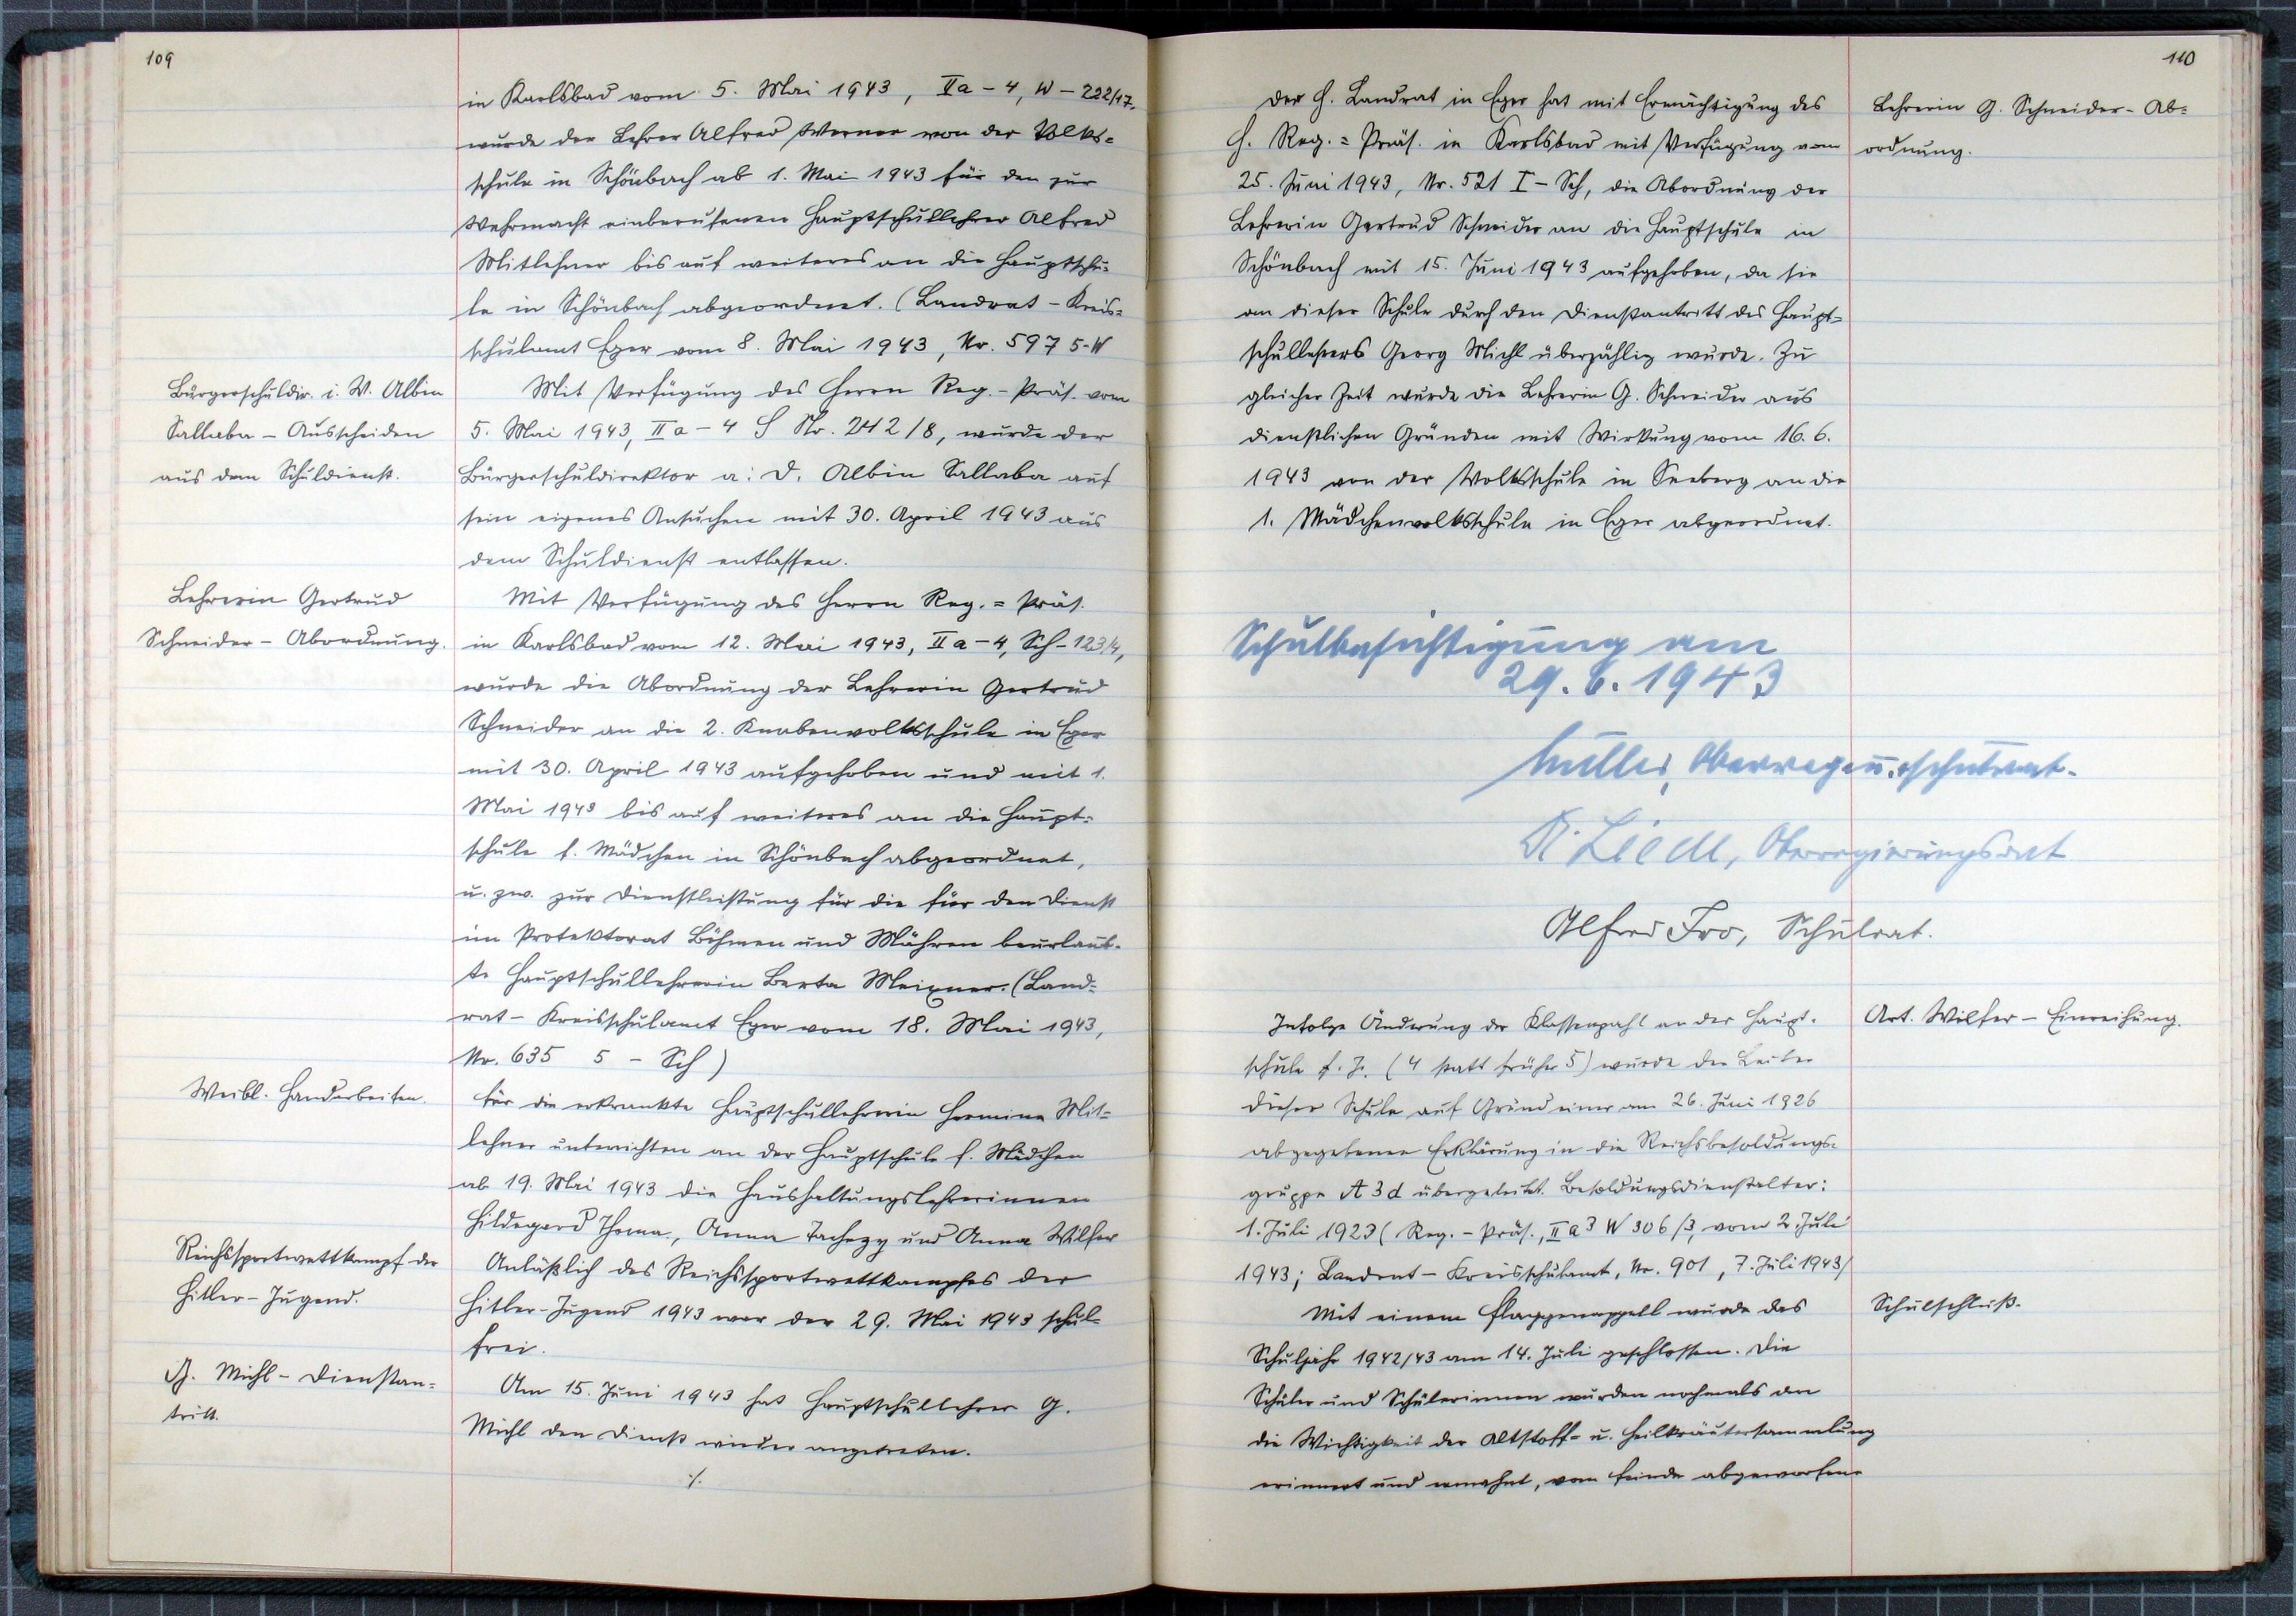 109
in Karlsbad vom 5. Mai 1943, IIa - 4, W - 222/17,
wurde der Lehrer Alfred Werner von der Volks=
schule in Schönbach ab 1. Mai 1943 für den zur
Wehrmacht einberufenen Hauptschullehrer Alfred
Mitlehner bis auf weiteres an die Hauptschu=
le in Schönbach abgeordnet. (Landrat - Kreis=
schulamt Eger vom 8. Mai 1943, Nr. 597 5-W
Bürgerschuldir. i. W. Albin
Sallaba - Ausscheiden
aus dem Schuldienst.
Mit Verfügung des Herrn Reg. - Präs. vom
5. Mai 1943, IIa - 4 S Nr. 242/8, wurde der
Bürgerschuldirektor a. D. Albin Sallaba auf
sein eigenes Ansuchen mit 30. April 1943 aus
dem Schuldienst entlassen.
Lehrerin Gertrud
Schneider - Abordnung.
Mit Verfügung des Herrn Reg. = Präs.
in Karlsbad vom 12. Mai 1943, IIa - 4, Sch - 123/4,
wurde die Abordnung der Lehrerin Gertrud
Schneider an die 2. Knabenvolksschule in Eger
mit 30. April 1943 aufgehoben und mit 1.
Mai 1943 bis auf weiteres an die Haupt=
schule f. Mädchen in Schönbach abgeordnet,
u. zw. zur Dienstleistung für die für den Dienst
im Protektorat Böhmen und Mähren beurlaub-
te Hauptschullehrerin Berta Meixner. (Land=
rat - Kreisschulamt Eger vom 18. Mai 1943,
Nr. 635 5 - Sch)
Weibl. Handarbeiten.
Für die erkrankte Hauptschullehrerin Hermine Mit=
lehner unterrichten an der Hauptschule f. Mädchen
ab 19. Mai 1943 die Haushaltungslehrerinnen
Hildegard Thoma, Anna Tachezy und Anna Wilfer
Reichssportwettkampf der
Hitler-Jugend.
Anläßlich des Reichssportwettkampfes der
Hitler-Jugend 1943 war der 29. Mai 1943 schul-
frei.
G. Michl - Dienstan=
tritt.
Am 15. Juni 1943 hat Hauptschullehrer G.
Michl den Dienst wieder angetreten.
./.
110
Der H. Landrat in Eger hat mit Ermächtigung des
H. Reg. = Präs. in Karlsbad mit Verfügung vom
25. Juni 1943, Nr. 521 I - Sch, die Abordnung der
Lehrerin Gertrud Schneider an die Hauptschule in
Schönbach mit 15. Juni 1943 aufgehoben, da sie
an dieser Schule durch den Dienstantritt des Haupt=
schullehrers Georg Michl überzählig wurde. Zu
gleicher Zeit wurde die Lehrerin G. Schneider aus
dienstlichen Gründen mit Wirkung vom 16. 6.
1943 von der Volksschule in Seeberg an die
1. Mädchenvolksschule in Eger abgeordnet.
Lehrerin G. Schneider - Ab=
ordnung.
Schulbesichtigung am
29. 6. 1943
Müller, Oberreg. u. schulrat.
Dr. Liedl, Oberregierungsrat
Alfred Fro, Schulrat.
Infolge Änderung der Klassenzahl an der Haupt-
schule f. J. (4 statt früher 5) wurde der Leiter
dieser Schule auf Grund einer am 26. Juni 1926
abgegebenen Erklärung in die Reichsbesoldungs-
gruppe A 3 d übergeleitet. Besoldungsdienstalter:
1. Juli 1923 (Reg. - Präs., II a 3 W 306/3, vom 2. Juli
1943; Landrat - Kreisschulamt, Nr. 901, 7. Juli 1943/
Ant. Wilfer - Einreihung.
Mit einem Flaggenappell wurde das
Schuljahr 1942/43 am 14. Juli geschlossen. Die
Schüler und Schülerinnen wurden nochmals an
die Wichtigkeit der Altstoff- u. Heilkräutersammlung
erinnert und ermahnt, vom Feinde abgeworfene
Schulschluß.